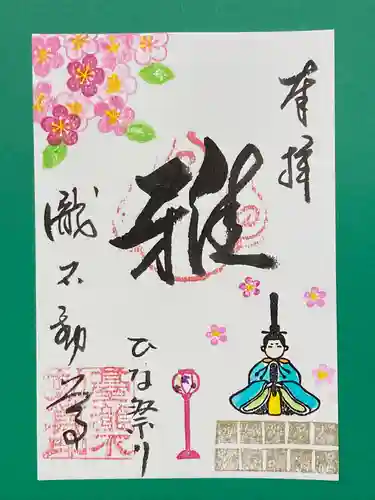 奉拝
雅
ひな祭り
瀧不動尊